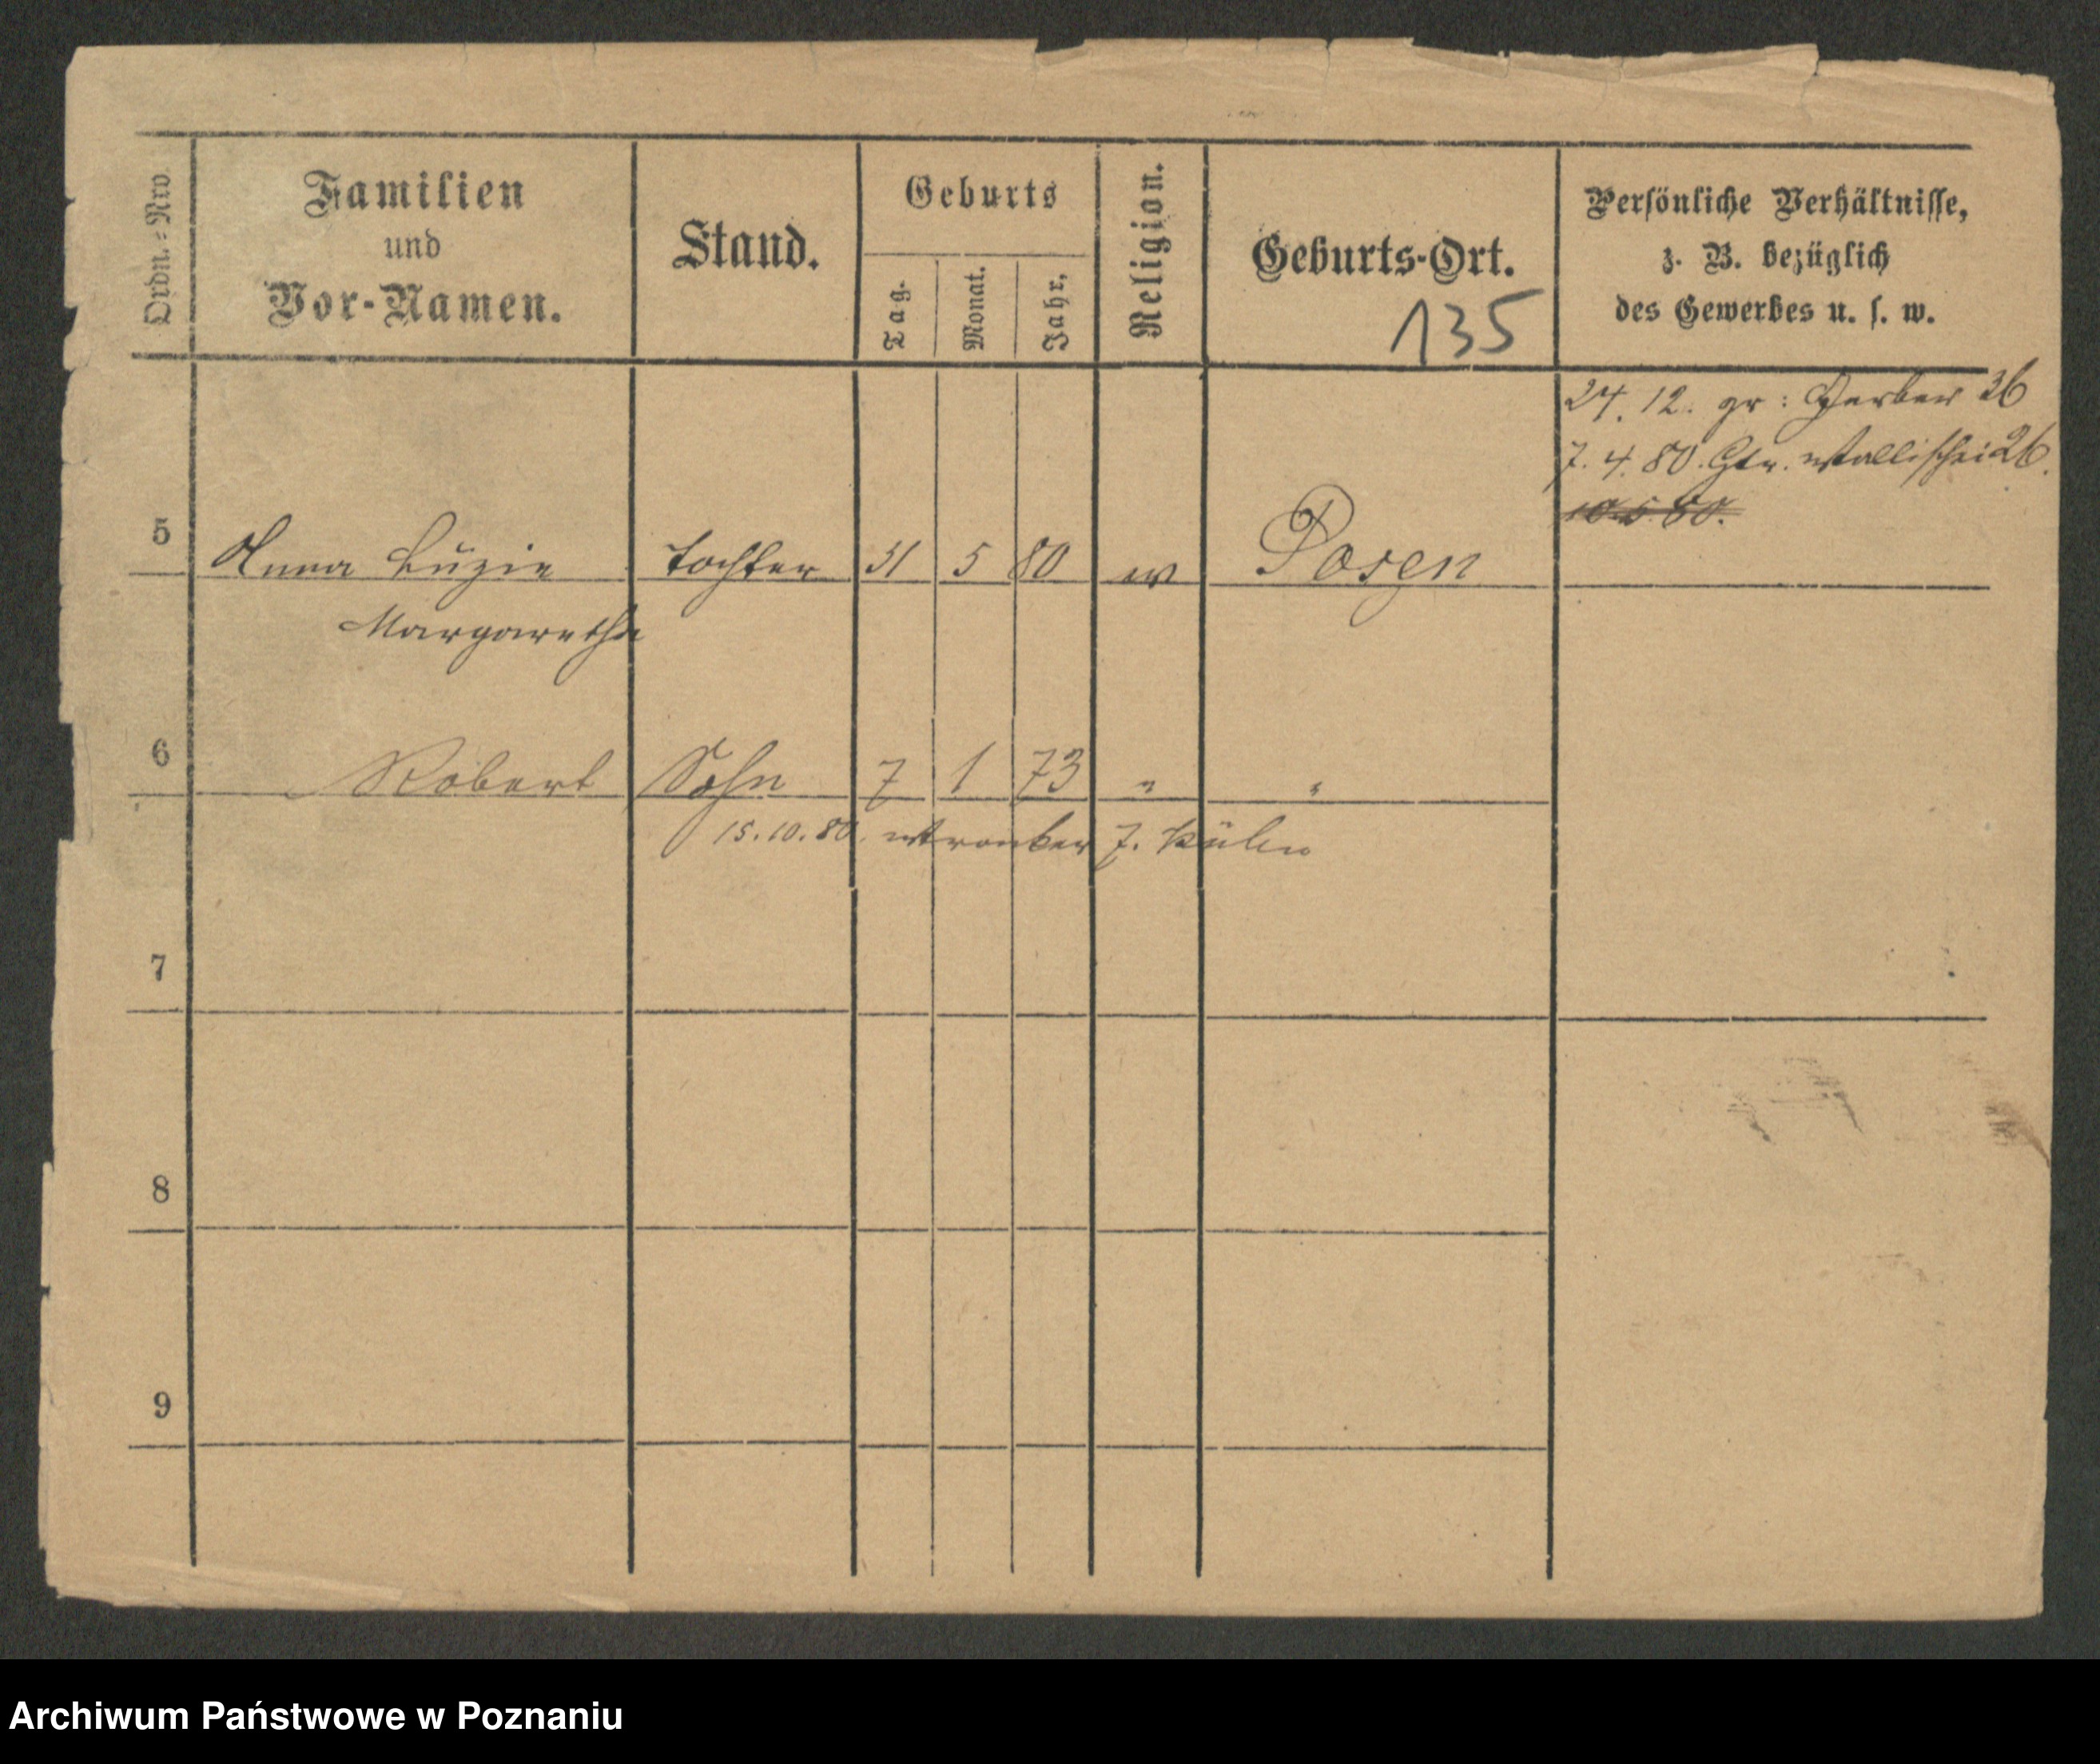 Ordn.-Nro.
Familien
und
Vor-Namen.
Stand.
Geburts
Tag.
Monat.
Jahr.
Religion.
Geburts-Ort.
135
Persönliche Verhältnisse,
z. B. bezüglich
des Gewerbes u. s. w.
24. 12. gr: Gerber 36
7. 4. 80. Wallischei 26.
10.5.80.
5 Anna Luzie Tochter 31 5 80 ev Posen
Margarethe
6 Robert Sohn 7 1 73 " "
15.10.80. Wronker 7.
7
8
9
Archiwum Państwowe w Poznaniu